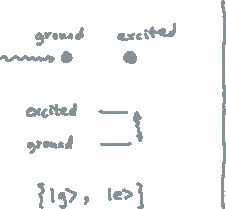 ground excited
excited
ground
{|g>, |e>}